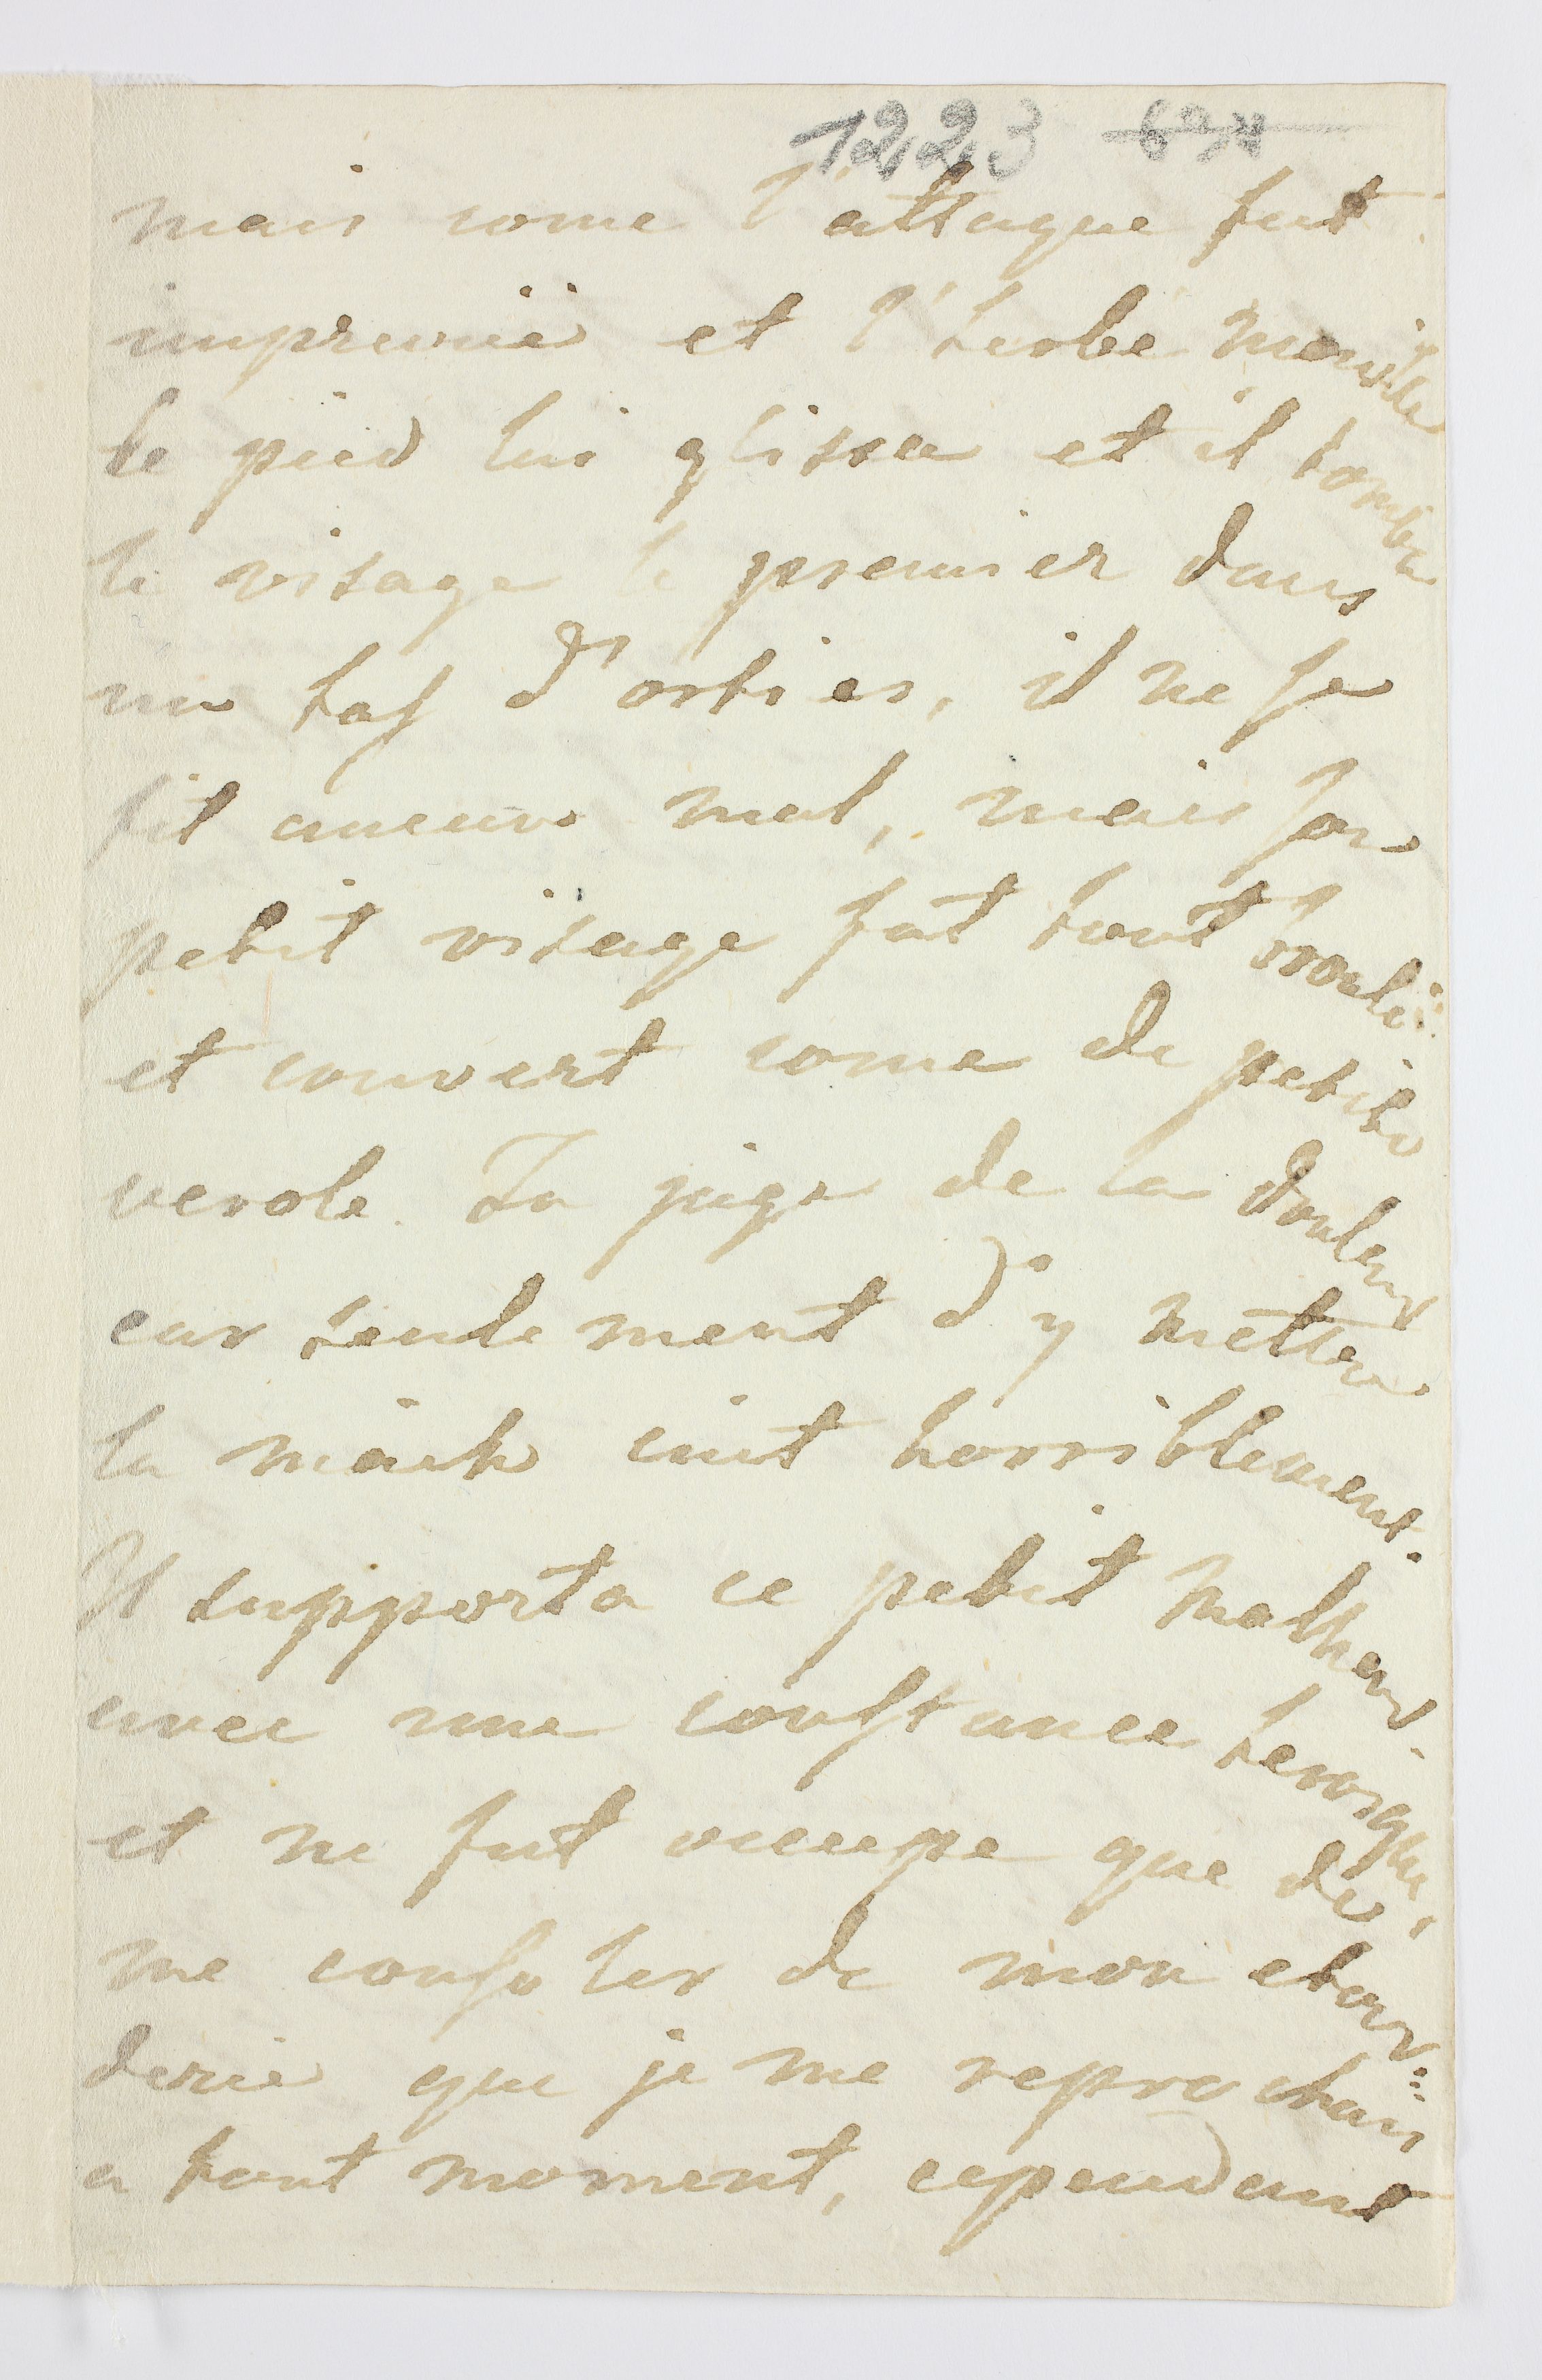 1223
mais come l'attaque fut
imprevüe et l'herbe mouille
le pied lui glissa et il tomba
le visage le premier dans
un tas d'orties, il ne se
fit aucun mal, mais son
petit visage fut tout
et couvert come de petite
verole. Ja juge de la douleur
car seulement d'y mettre
la main cuit horriblement.
Il supporta ce petit malheur
avec une constance heroique,
et ne fut occupe que de
me consoler de mon etour=
derie que je me reprochais
a tout moment, cependant